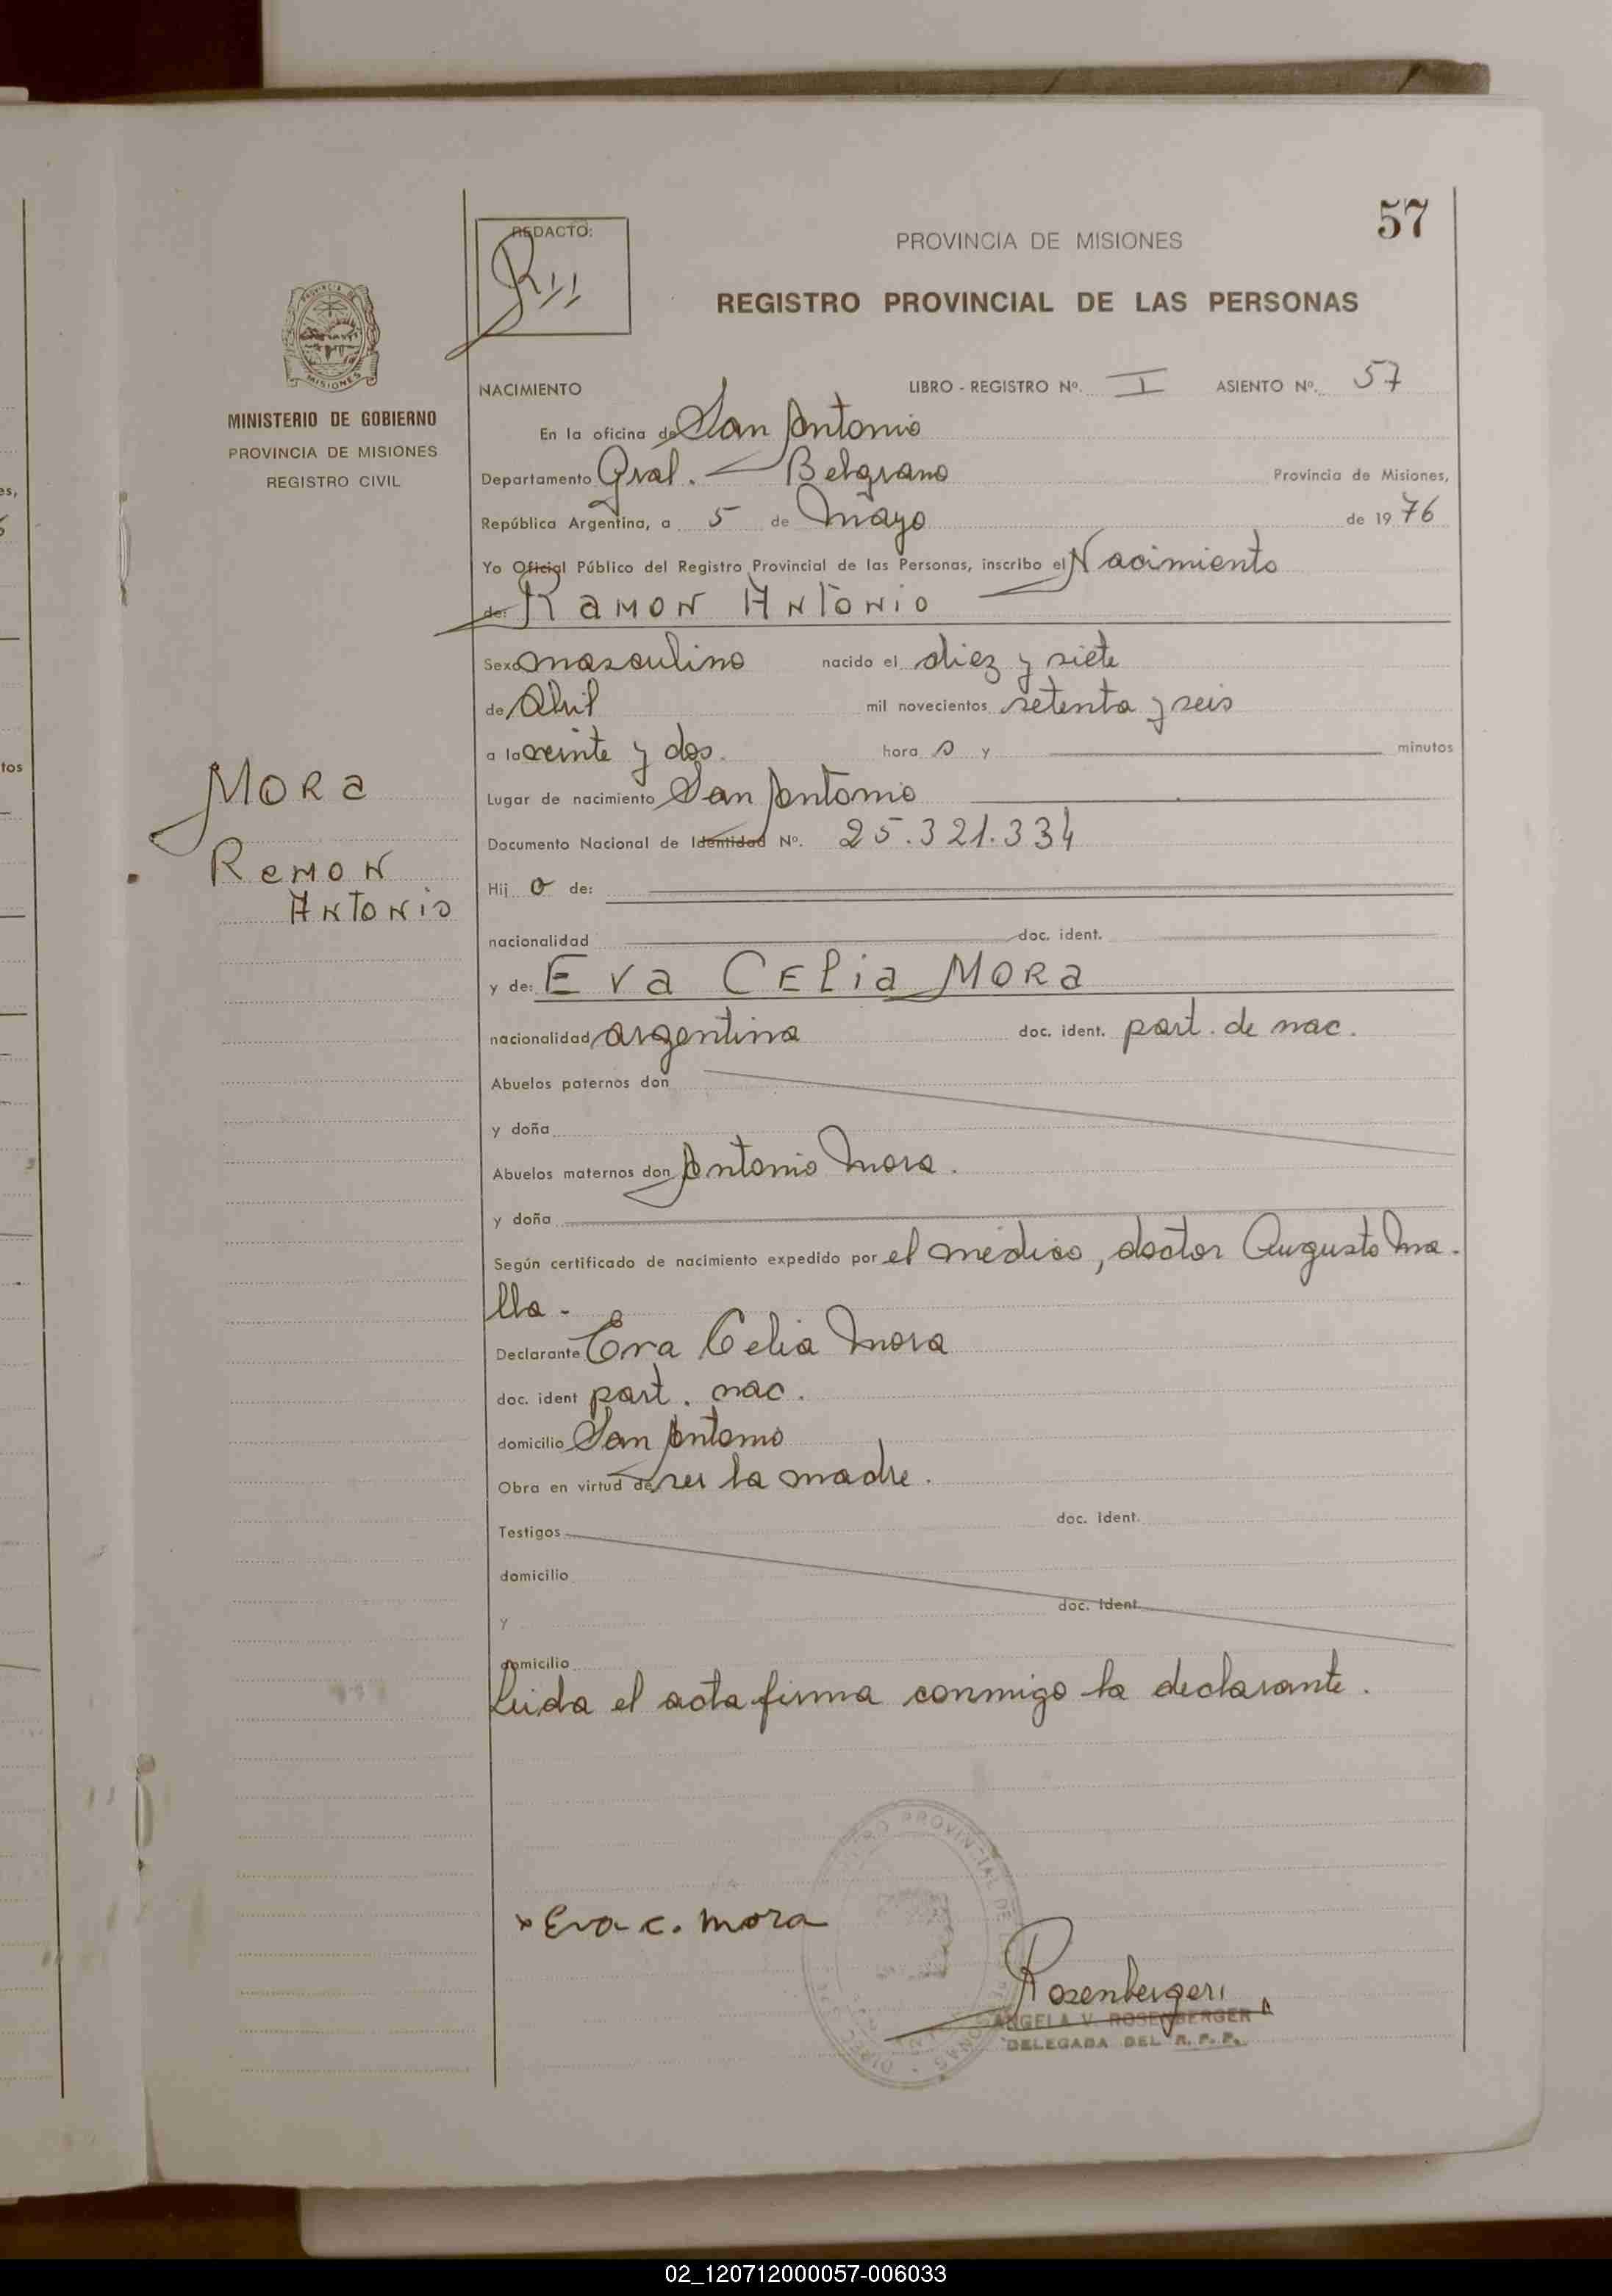 57
REDACTO:
PROVINCIA DE MISIONES
REGISTRO PROVINCIAL DE LAS PERSONAS
MINISTERIO DE GOBIERNO
PROVINCIA DE MISIONES
REGISTRO CIVIL
NACIMIENTO LIBRO - REGISTRO Nº. I ASIENTO Nº. 57
En la oficina de San Antonio
Departamento Gral. Belgrano Provincia de Misiones,
República Argentina, a 5 de Mayo de 19 76
Yo Oficial Público del Registro Provincial de las Personas, inscribo el Nacimiento
de: RAMON ANTONIO
Sexo masculino nacido el diez y siete
de Abril mil novecientos setenta y seis
a la veinte y dos. hora s y minutos
MORa
Lugar de nacimiento San Antonio
Documento Nacional de Identidad Nº. 25.321.334
RamON
ANTONIO
Hij o de:
nacionalidad doc. ident.
y de: Eva CELia MORa
nacionalidad argentina doc. ident. part. de nac.
Abuelos paternos don
y doña
Abuelos maternos don Antonio Mora.
y doña
Según certificado de nacimiento expedido por el médico, doctor Augusto Ma-
lla -
Declarante Eva Celia Mora
doc. ident part. nac.
domicilio San Antonio
Obra en virtud de ser la madre.
Testigos doc. ident.
domicilio
y doc. ident
domicilio
Leida el acta firma conmigo la declarante.
x Eva c. mora
Rosenberger
ANGELA V. ROSENBERGER
DELEGADA DEL R. P. P.
es,
tos
MISIONES
02_120712000057-006033